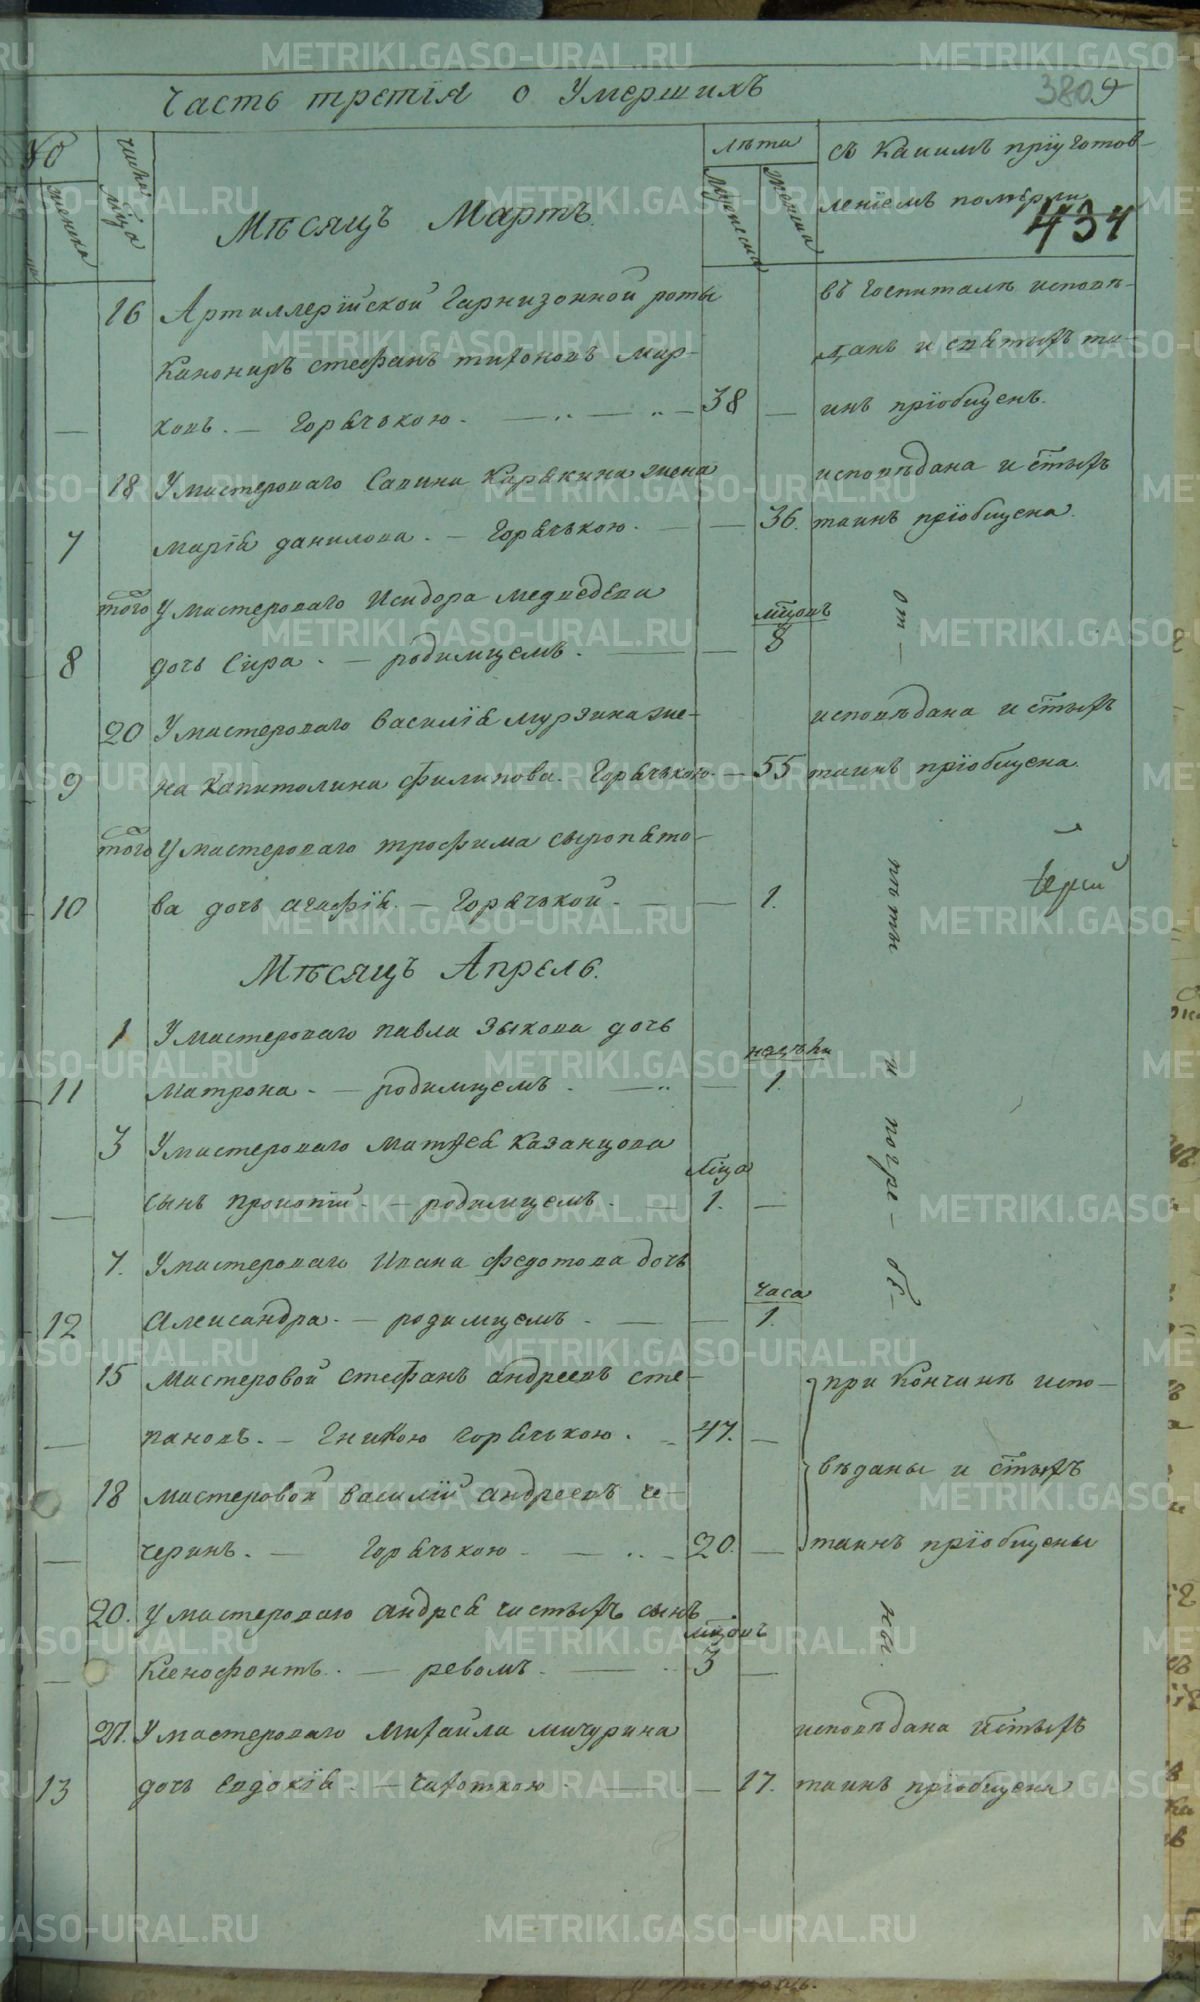 Часть третія о умершихъ
380 9
№
женска
число мѣца
Мѣсяцъ Мартъ.
лѣта
мужеска
женска
съ какимъ пріуготов-
леніемъ померли
434
16 Артиллерійской Гарнизонной роты
Канониръ Стефанъ Тихоновъ Мар-
ковъ. — Горячькою. — 38 —
въ госпиталѣ исповѣ-
данъ и святыхъ та-
инъ пріобщенъ.
18 У мастероваго Савина Карякина жена
7 Марія Данилова. — Горячькою. — 36.
исповѣдана и стыхъ
таинъ пріобщена.
того У мастероваго Исидора Медведева
8 дочь Сира. — родимцемъ. — мцовъ 8
от-
20 У мастероваго Василія Мурзина же-
9 на Капитолина Филипова. Горячькою. — 55
исповѣдана и стыхъ
таинъ пріобщена.
того У мастероваго Трофима Сыропято-
10 ва дочь Агафія. — Горячькой. — 1.
пѣты
Мѣсяцъ Апрель.
1 У мастероваго Павла Зыкова дочь
11 Матрона. — родимцемъ. — недѣли 1.
и
3 У мастероваго Матѳея Казанцова
сынъ Прокопій. — родимцемъ. — мца 1. —
погре-
7. У мастероваго Ивана Федотова дочь
12 Александра. — родимцемъ. — часа 1.
бе-
15 Мастеровой Стефанъ Андреевъ Сте-
пановъ. — Гнилою горячькою. 47. —
при кончинѣ испо-
вѣданы и стыхъ
18 Мастеровой Василій Андреевъ Че-
черинъ. — Горячькою — 20. —
таинъ пріобщены
20. У мастероваго Андрея Чистыхъ сынъ
Ксенофонтъ. — ревомъ. — мцовъ 3 —
ны.
27. У мастероваго Михаила Мичурина
13 дочь Евдокія. — Чахоткою. — 17.
исповѣдана и стыхъ
таинъ пріобщена
METRIKI.GASO-URAL.RU